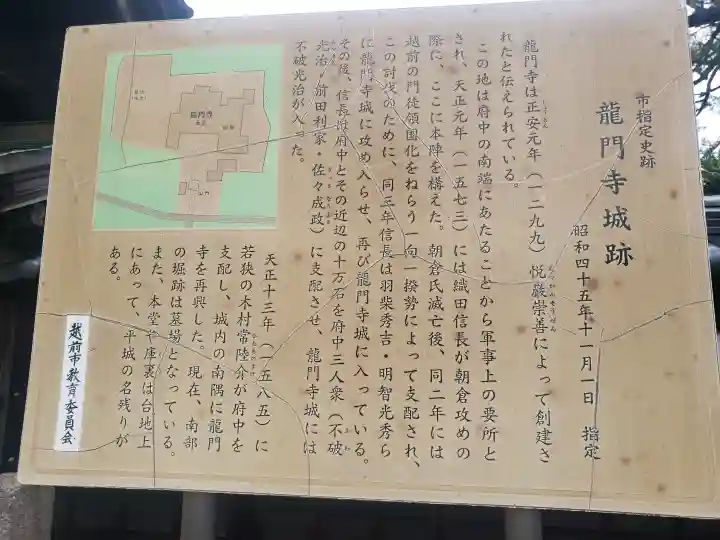 市指定史跡
龍門寺城跡
昭和四十五年十一月一日　指定
龍門寺は正安元年（一二九九）悦巌崇善によって創建さ
れたと伝えられている。
この地は府中の南端にあたることから軍事上の要所と
され、天正元年（一五七三）には織田信長が朝倉攻めの
際に、ここに本陣を構えた。朝倉氏滅亡後、同二年には
越前の門徒領国化をねらう一向一揆勢によって支配され、
この討伐のために、同三年信長は羽柴秀吉・明智光秀ら
に龍門寺城に攻め入らせ、再び龍門寺城に入っている。
その後、信長は府中とその近辺の十万石を府中三人衆（不破
光治・前田利家・佐々成政）に支配させ、龍門寺城には
不破光治が入った。
天正十三年（一五八五）に
若狭の木村常陸介が府中を
支配し、城内の南隅に龍門
寺を再興した。現在、南部
の堀跡は墓場となっている。
また、本堂や庫裏は台地上
にあって、平城の名残りが
ある。
龍門寺
越前市教育委員会